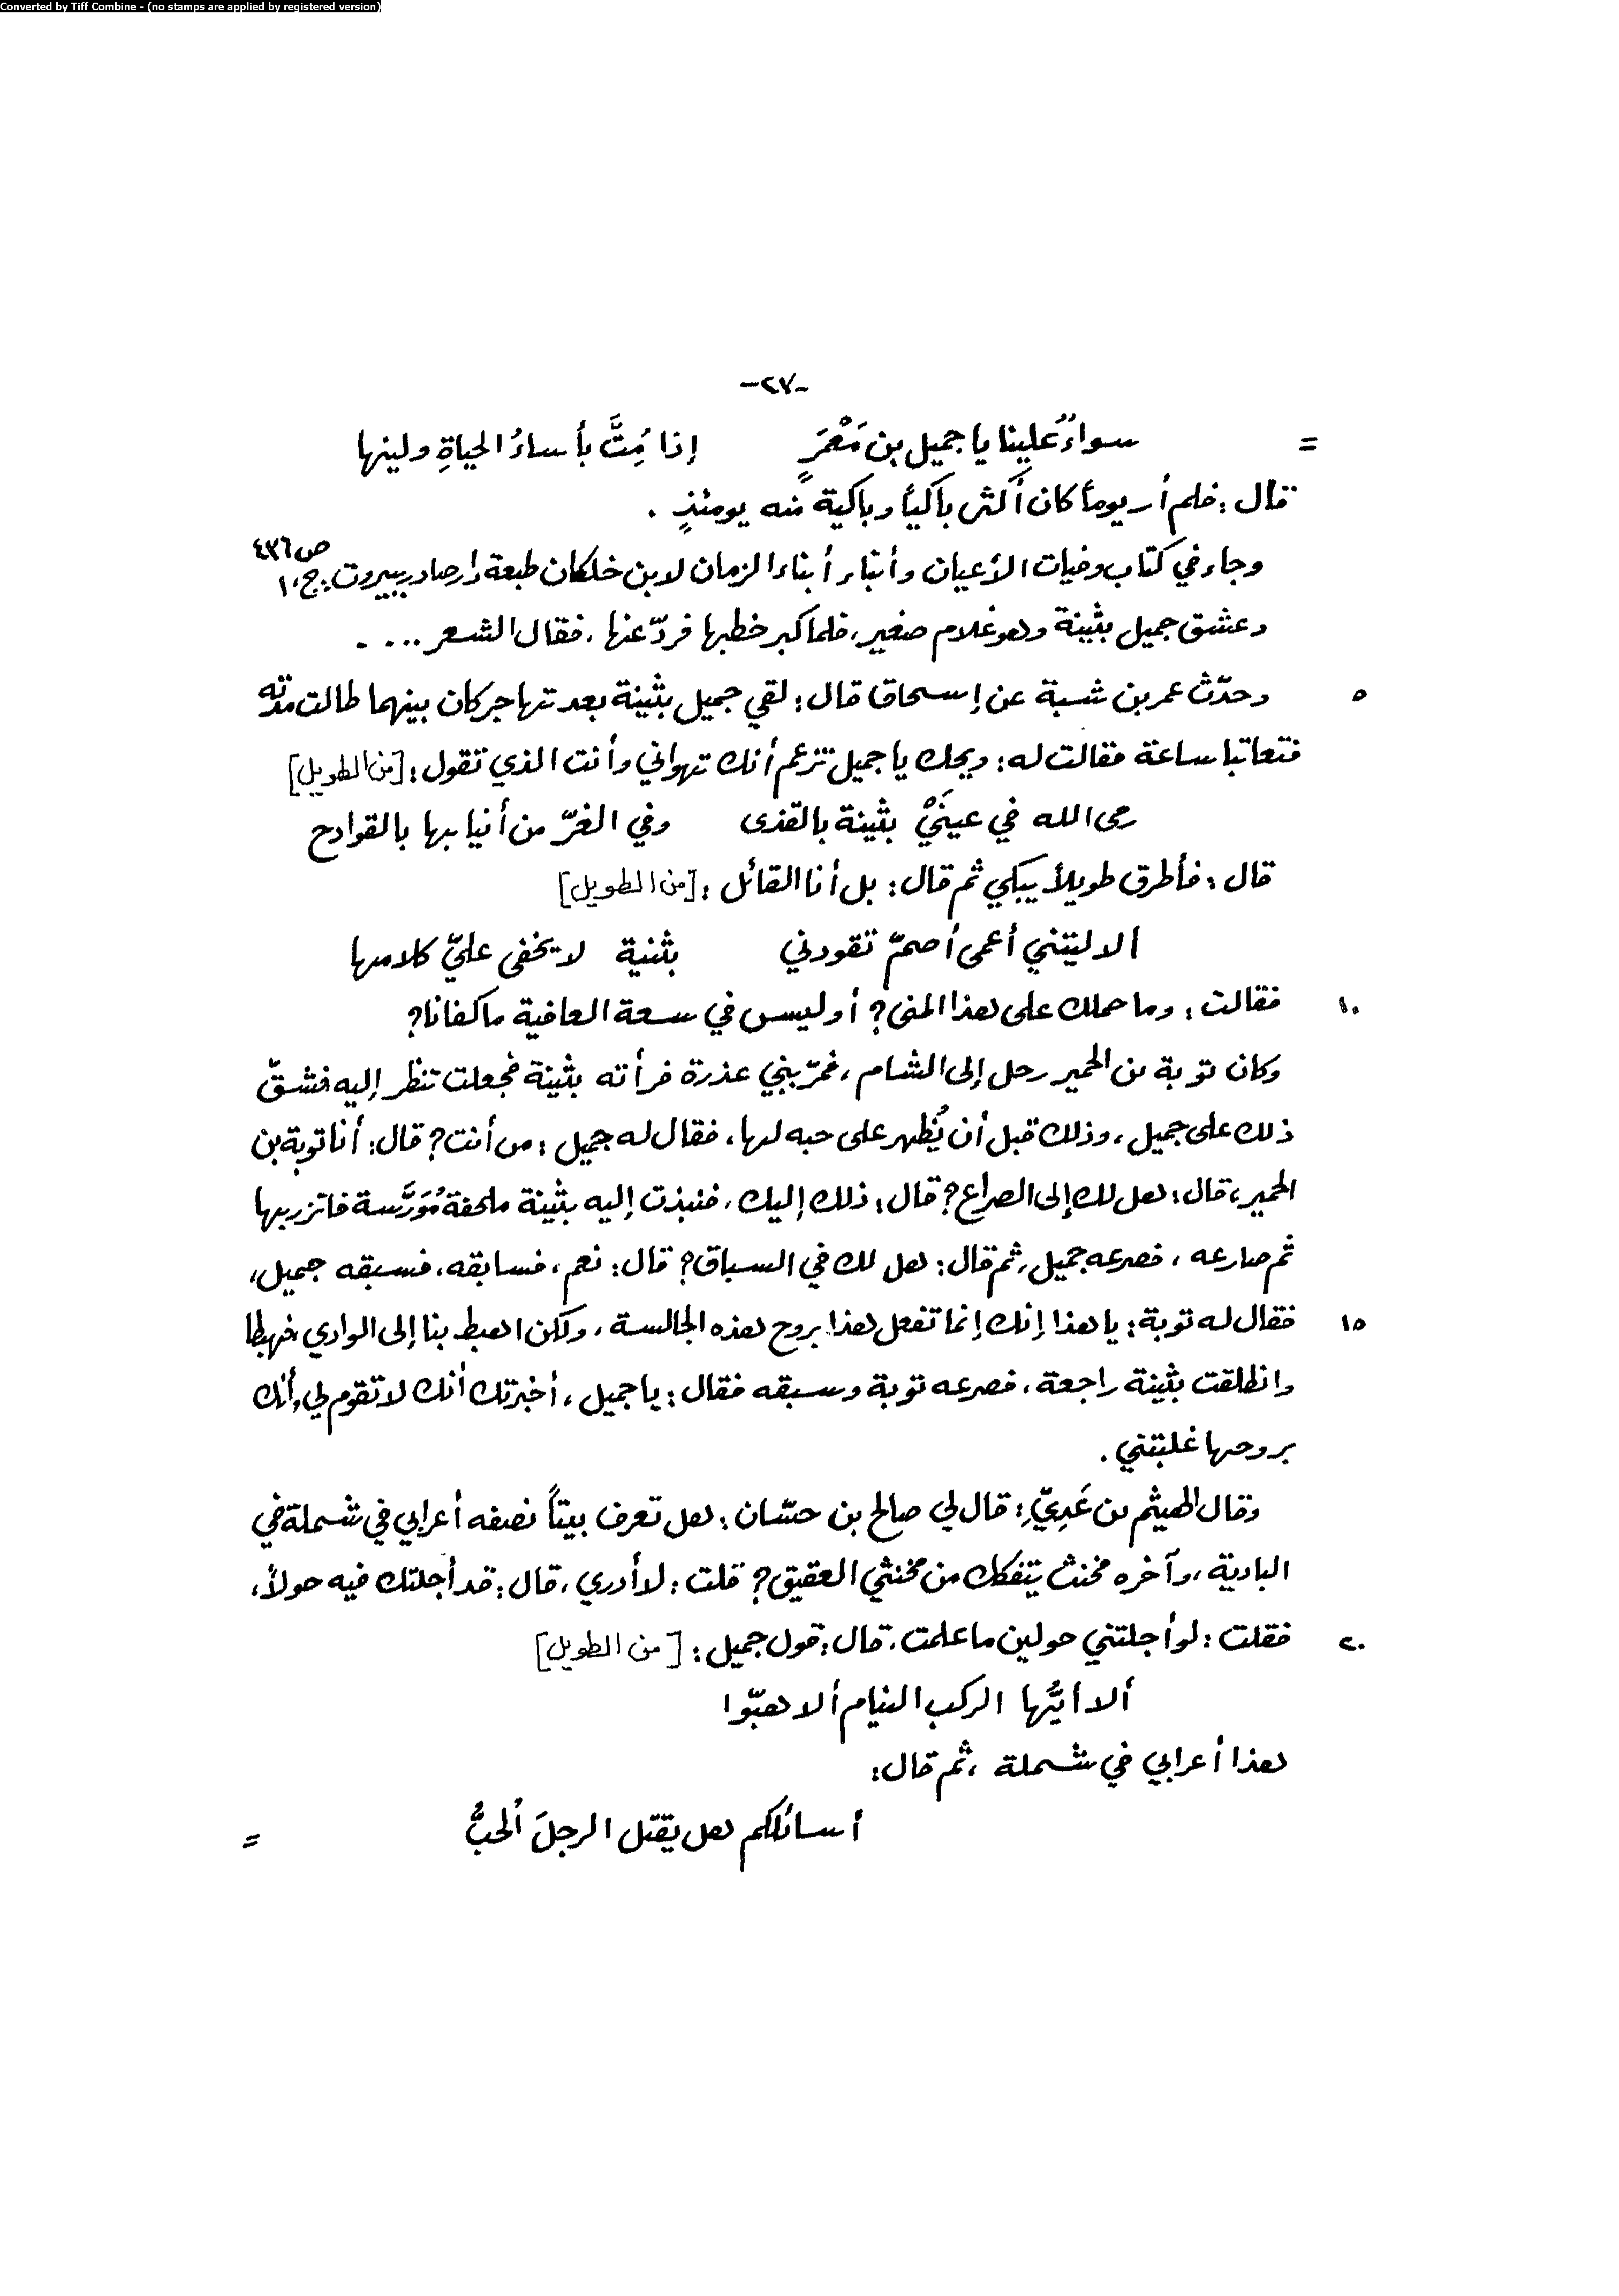 Converted by Tiff Combine - (no stamps are applied by registered version)
-٢٧-
= سواءٌ علينا يا جميل بن مَعْمَرٍ إذا مِتَّ بأساءُ الحياةِ ولينها
قال : فلم أر يوماً كان أكثر باكياً وباكية منه يومئذٍ .
وجاء في كتاب وفيات الأعيان وأنباء أبناء الزمان لابن خلكان طبعة دار صادر ببيروت . ج، ١ ص ٤٣٦
وعشق جميل بثينة وهو غلام صغير، فلما كبر خطبها فردّ عنها ، فقال الشعر ....
٥ وحدّث عمر بن شبة عن إسحاق قال : لقي جميل بثينة بعد تهاجر كان بينهما طالت مدته
فتعاتبا ساعة فقالت له : ويحك يا جميل تزعم أنك تهواني وأنت الذي تقول : [من الطويل]
رمى الله في عينَيْ بثينة بالقذى وفي الغرّ من أنيابها بالقوادح
قال : فأطرق طويلاً يبكي ثم قال : بل أنا القائل : [من الطويل]
ألا ليتني أعمى أصمّ تقودني بثنية لا يخفى عليّ كلامها
١٠ فقالت : وما حملك على هذا المنى ؟ أوليس في سعة العافية ما كفانا ؟
وكان توبة بن الحمير رحل إلى الشام ، فمرّ ببني عذرة فرأته بثينة فجعلت تنظر إليه فشقّ
ذلك على جميل ، وذلك قبل أن يُظهر على حبه لها ، فقال له جميل : من أنت ؟ قال : أنا توبة بن
الحمير ، قال : هل لك إلى الصراع ؟ قال : ذلك إليك ، فنبذت إليه بثينة ملحفة مُوَرَّسة فاتزر بها
ثم صارعه ، فصرعه جميل ، ثم قال : هل لك في السباق ؟ قال : نعم ، فسابقه ، فسبقه جميل ،
١٥ فقال له توبة : يا هذا إنك إنما تفعل هذا بروح هذه الجالسة ، ولكن اهبط بنا إلى الوادي ، فهبطا
وانطلقت بثينة راجعة ، فصرعه توبة وسبقه فقال : يا جميل ، أخبرتك أنك لا تقوم لي وأنك
بروحها غلبتني .
وقال الهيثم بن عَدِيّ : قال لي صالح بن حسّان : هل تعرف بيتاً نصفه أعرابي في شملة في
البادية ، وآخره مخنث يتفكك من مخنثي العقيق ؟ قلت : لا أدري ، قال : قد أجلتك فيه حولاً ،
٢٠ فقلت : لو أجلتني حولين ما علمت ، قال : قول جميل : [من الطويل]
ألا أيُّها الركب النيام ألا هبّوا
هذا أعرابي في شملة ، ثم قال :
أسائلكم هل يقتل الرجلَ الحبُّ =